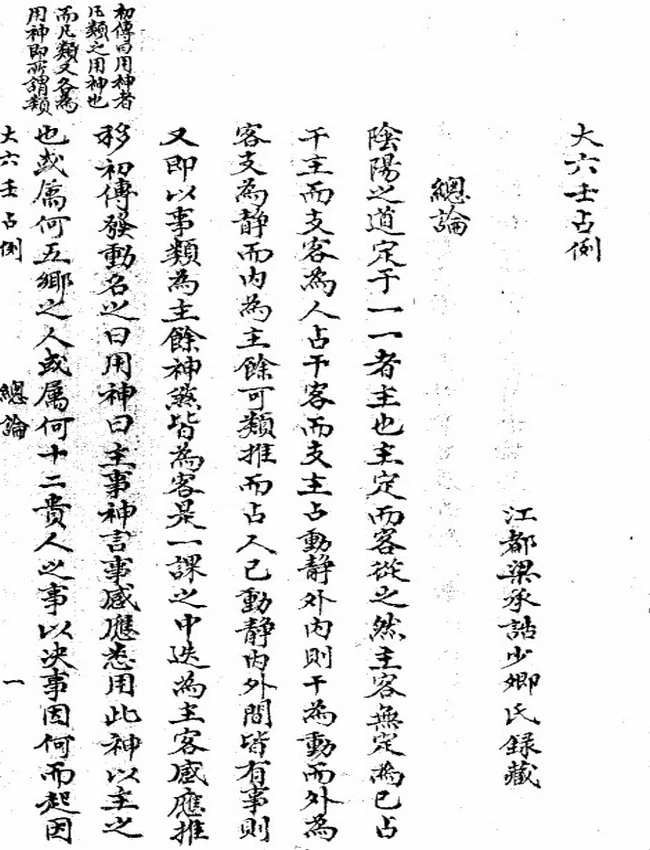 大六壬占例
江都梁承誥少卿氏錄藏
總論
陰陽之道定于一一者主也主定而客從之然主客無定為已占
干主而支客為人占干客而支主占動靜外內則干為動而外為
客支為靜而內為主餘可類推而占人已動靜內外間皆有事則
又即以事類為主餘神煞皆為客是一課之中迭為主客感應推
移初傳發動名之曰用神曰主事神言事感應悉用此神以主之
也或属何五鄉之人或属何十二貴人之事以决事因何而起因
初傳曰用神者
凡類之用神也
而凡類又各為
用神即所謂類
大六壬占例 總論 一